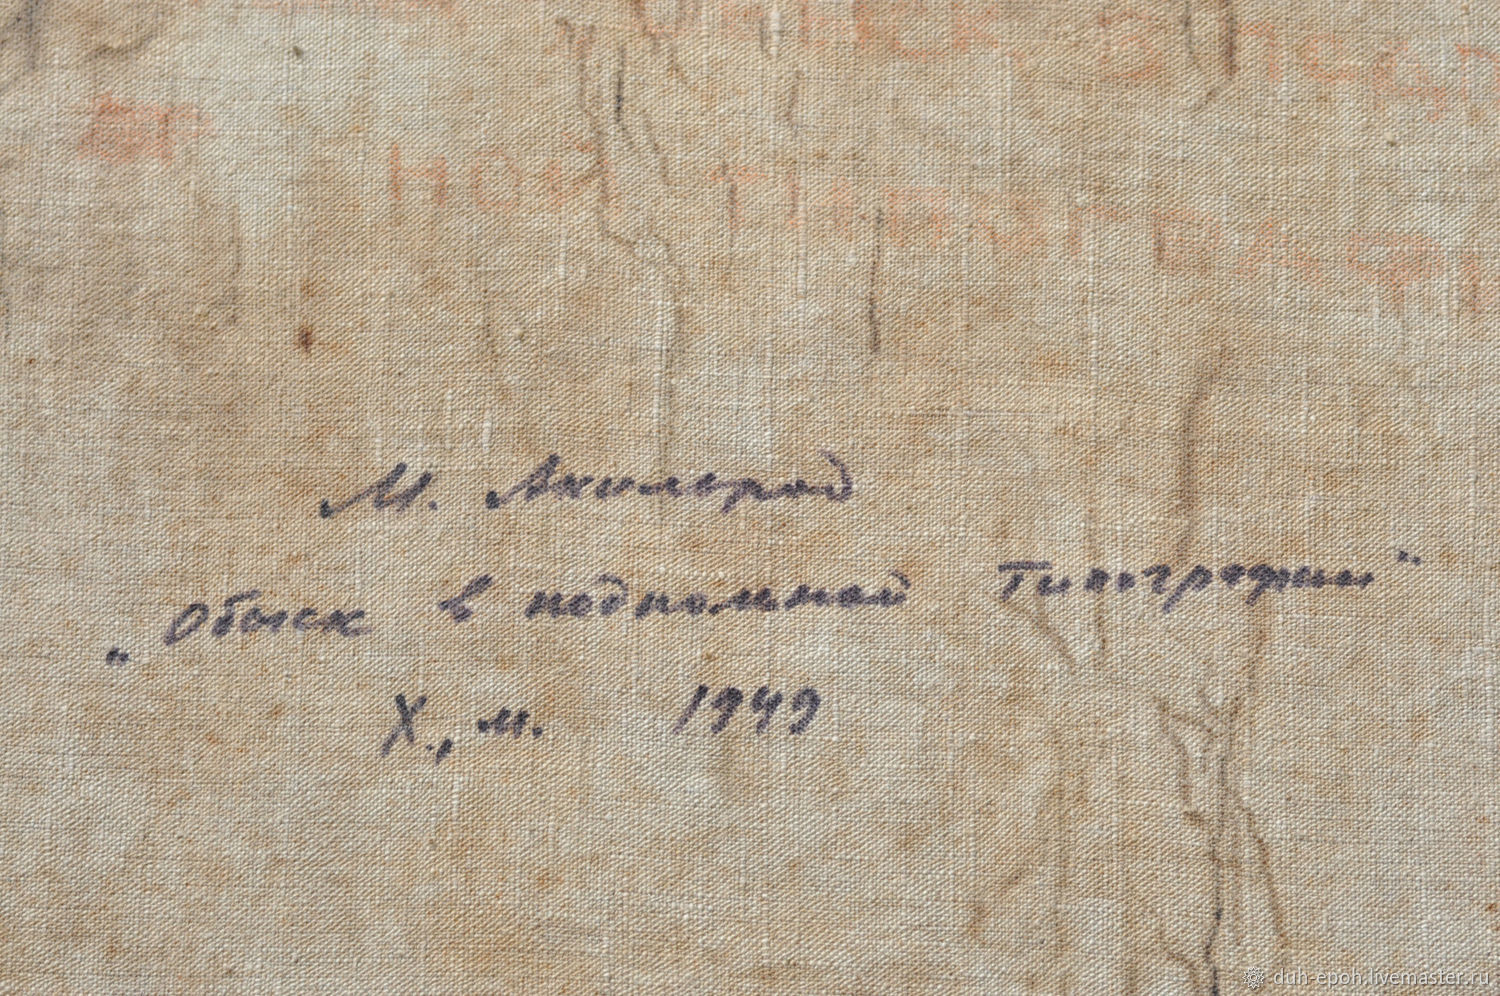 ОБЫСК В ПОДПОЛЬ
НОЙ ТИПОГРАФИ
М.
„Обыск в подпольной Типографии"
Х., м. 1949
duh-epoh.livemaster.ru